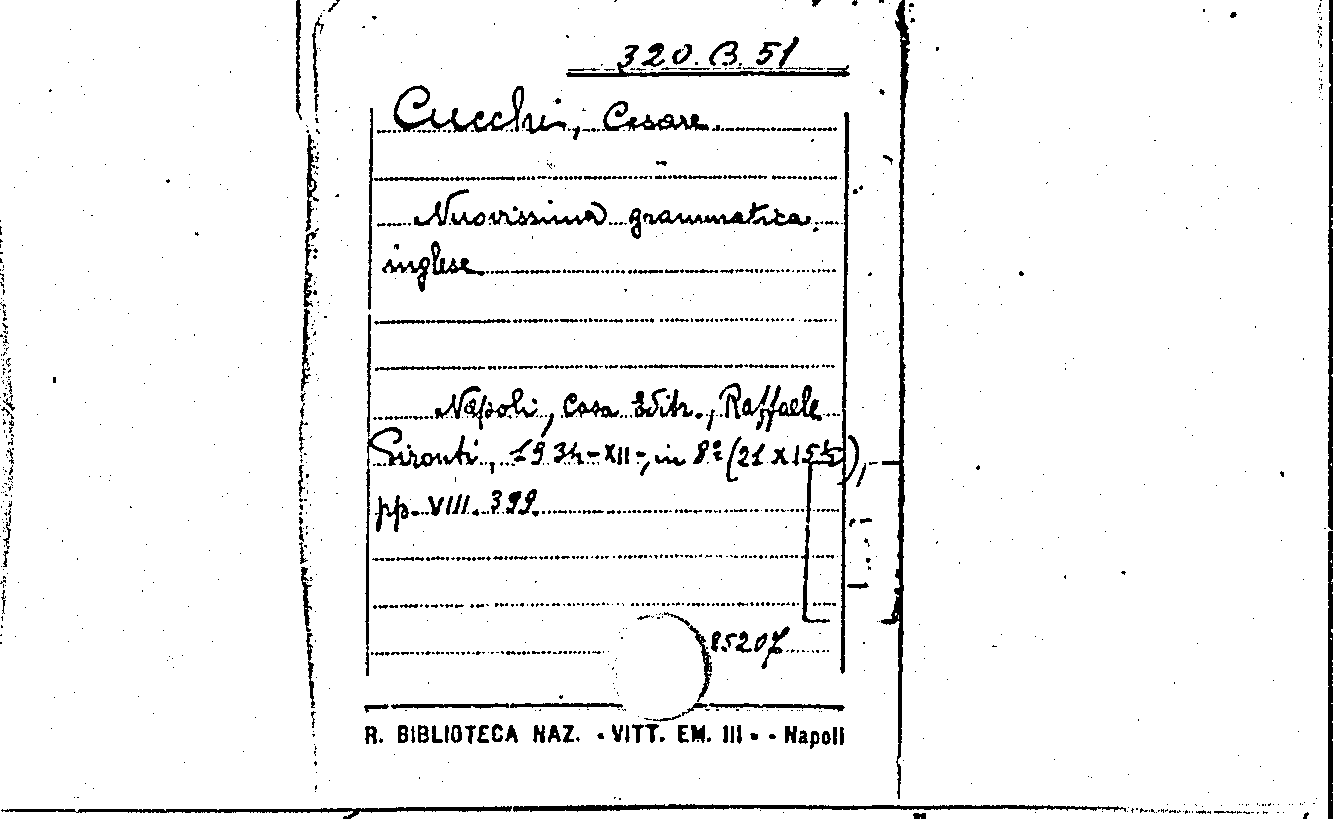 320.B.51
Cucchi, Cesare.
Nuovissima grammatica
inglese
Napoli, Casa Editr., Raffaele
Pironti, 1934-XII-, in 8º (21 x 15½),
pp. VIII. 399.
85207
R. BIBLIOTECA NAZ. «VITT. EM. III» - Napoli